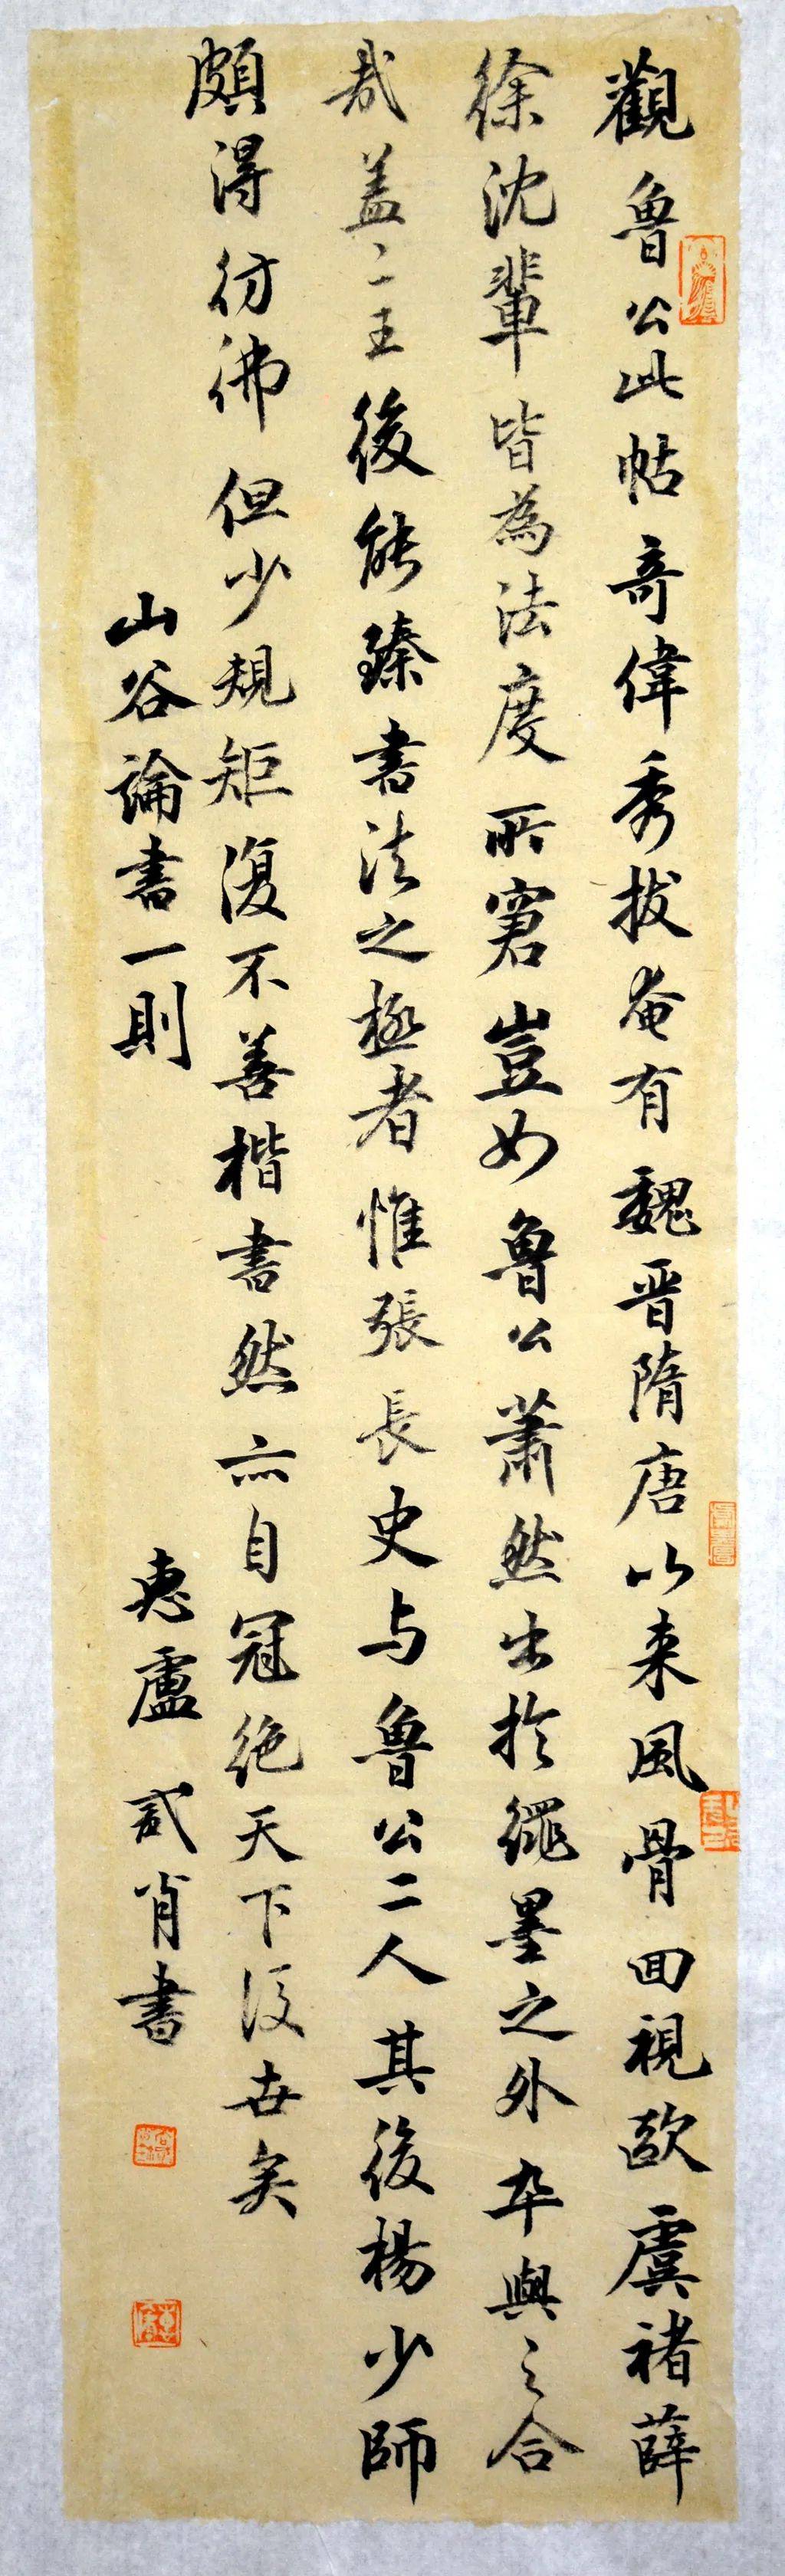 觀魯公此帖奇偉秀拔奄有魏晉隋唐以来風骨回視歐虞褚薛
徐沈輩皆為法度所窘豈如魯公蕭然出於繩墨之外卒與之合
哉盖二王後能臻書法之極者惟張長史与魯公二人其後楊少師
頗得彷彿但少規矩復不善楷書然亦自冠絕天下後世矣
山谷論書一則
惠盧 貳肖書